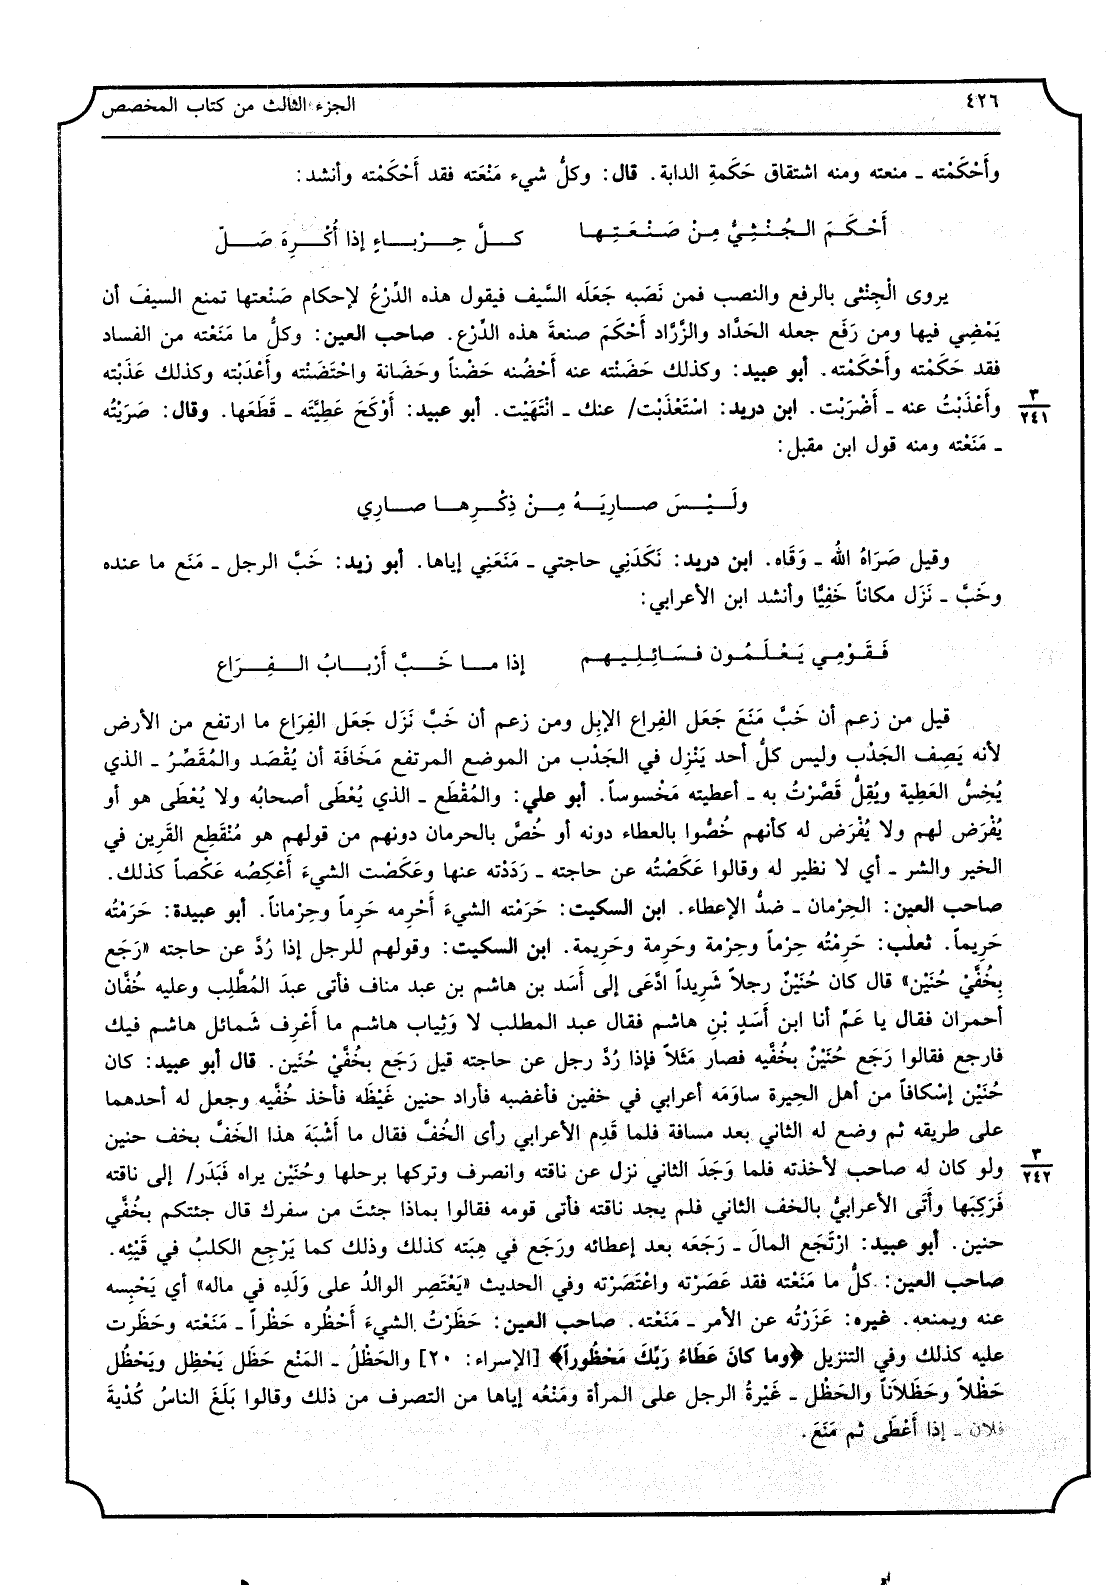 ٤٢٦
الجزء الثالث من كتاب المخصص
وأَحْكَمْته ـ منعته ومنه اشتقاق حَكَمةِ الدابة. قال: وكلُّ شيء مَنْعَته فقد أَحْكَمْته وأنشد:
أَحْكَمَ الـجُنْثِيُّ مِنْ صَنْعَتِـها كـلَّ حِـرْبـاءٍ إذا أُكْـرِهَ صَـلّ
يروى الْجِنْثى بالرفع والنصب فمن نَصَبه جَعَلَه السَّيف فيقول هذه الدِّرْعُ لإحكام صَنْعتها تمنع السيفَ أن
يَمْضِي فيها ومن رَفَع جعله الحَدَّاد والزَّرَّاد أَحْكَمَ صنعةَ هذه الدِّرْع. صاحب العين: وكلُّ ما مَنَعْته من الفساد
فقد حَكَمْته وأَحْكَمْته. أبو عبيد: وكذلك حَضَنْته عنه أَحْضُنه حَضْناً وحَضَانة واحْتَضَنْته وأَعْذَبْته وكذلك عَذَبْته
وأَعْذَبْتُ عنه ـ أَضْرَبْت. ابن دريد: اسْتَعْذَبْت/ عنك ـ انْتَهَيْت. أبو عبيد: أَوْكَحَ عَطِيَّتَه ـ قَطَعَها. وقال: صَرَيْتُه
٣
٢٤١
ـ مَنَعْته ومنه قول ابن مقبل:
ولَـيْـسَ صـارِيَـهُ مِـنْ ذِكْـرِهـا صـارِي
وقيل صَرَاهُ اللهُ ـ وَقَاه. ابن دريد: نَكَدَنِي حاجتي ـ مَنَعَنِي إياها. أبو زيد: خَبَّ الرجل ـ مَنَع ما عنده
وخَبَّ ـ نَزَل مكاناً خَفِيًّا وأنشد ابن الأعرابي:
فَـقَـوْمِـي يَـعْـلَـمُـون فـسَـائِـلِـيهِـم إذا مـا خَـبَّ أَرْبـابُ الـفِـرَاع
قيل من زعم أن خَبَّ مَنَعَ جَعَل الفِراع الإبِل ومن زعم أن خَبَّ نَزَل جَعَل الفِرَاع ما ارتفع من الأرض
لأنه يَصِف الجَدْب وليس كلُّ أحد يَنْزِل في الجَدْب من الموضع المرتفع مَخَافَة أن يُقْصَد والمُقَصِّرُ ـ الذي
يُخِسُّ العَطِية ويُقِلُّ قَصَّرْتُ به ـ أعطيته مَخْسوساً. أبو علي: والمُقْطَع ـ الذي يُعْطَى أصحابُه ولا يُعْطَى هو أو
يُفْرَض لهم ولا يُفْرَض له كأنهم خُصُّوا بالعطاء دونه أو خُصَّ بالحرمان دونهم من قولهم هو مُنْقَطِع القَرِين في
الخير والشر ـ أي لا نظير له وقالوا عَكَصْتُه عن حاجته ـ رَدَدْته عنها وعَكَصْت الشيءَ أَعْكِصُه عَكْصاً كذلك.
صاحب العين: الحِرْمان ـ ضدُّ الإعطاء. ابن السكيت: حَرَمْته الشيءَ أَحْرِمه حَرِماً وحِرْماناً. أبو عبيدة: حَرَمْتُه
حَرِيماً. ثعلب: حَرِمْتُه حِرْماً وحِرْمة وحَرِمة وحَرِيمة. ابن السكيت: وقولهم للرجل إذا رُدَّ عن حاجته «رَجَع
بِخُفَّيْ حُنَيْن» قال كان حُنَيْنٌ رجلاً شَرِيداً ادَّعَى إلى أَسَد بن هاشم بن عبد مناف فأتى عبدَ المُطَّلِب وعليه خُفَّان
أحمران فقال يا عَمِّ أنا ابن أَسَدِ بْنِ هاشم فقال عبد المطلب لا وَثِياب هاشم ما أَعْرِف شَمائل هاشم فيك
فارجع فقالوا رَجَع حُنَيْنٌ بخُفَّيه فصار مَثَلاً فإذا رُدَّ رجل عن حاجته قيل رَجَع بخُفَّيْ حُنَين. قال أبو عبيد: كان
حُنَيْن إسْكافاً من أهل الحِيرة ساوَمَه أعرابي في خفين فأغضبه فأراد حنين غَيْظَه فأخذ خُفَّيه وجعل له أحدهما
على طريقه ثم وضع له الثاني بعد مسافة فلما قَدِم الأعرابي رأى الخُفَّ فقال ما أَشْبَهَ هذا الخَفَّ بخف حنين
ولو كان له صاحب لأخذته فلما وَجَدَ الثاني نزل عن ناقته وانصرف وتركها برحلها وحُنَيْن يراه فَبَدَر/ إلى ناقته
٣
٢٤٢
فَرَكِبَها وأَتَى الأعرابيُّ بالخف الثاني فلم يجد ناقته فأتى قومه فقالوا بماذا جئتَ من سفرك قال جئتكم بخُفَّي
حنين. أبو عبيد: ارْتَجَع المالَ ـ رَجَعَه بعد إعطائه ورَجَع في هِبَته كذلك وذلك كما يَرْجِع الكلبُ في قَيْئِه.
صاحب العين: كلُّ ما مَنَعْته فقد عَصَرْته واعْتَصَرْته وفي الحديث «يَعْتَصِر الوالدُ على وَلَدِه في ماله» أي يَحْبِسه
عنه ويمنعه. غيره: عَزَرْتُه عن الأمر ـ مَنَعْته. صاحب العين: حَظَرْتُ الشيءَ أَحْظُره حَظْراً ـ مَنَعْته وحَظَرت
عليه كذلك وفي التنزيل ﴿وما كانَ عَطَاءُ رَبِّكَ مَحْظُوراً﴾ [الإسراء: ٢٠] والحَظْلُ ـ المَنْع حَظَل يَحْظِل ويَحْظُل
حَظْلاً وحَظَلاَناً والحَظْل ـ غَيْرةُ الرجل على المرأة ومَنْعُه إياها من التصرف من ذلك وقالوا بَلَغَ الناسُ كُدْيةَ
فلان ـ إذا أَعْطَى ثم مَنَعَ.